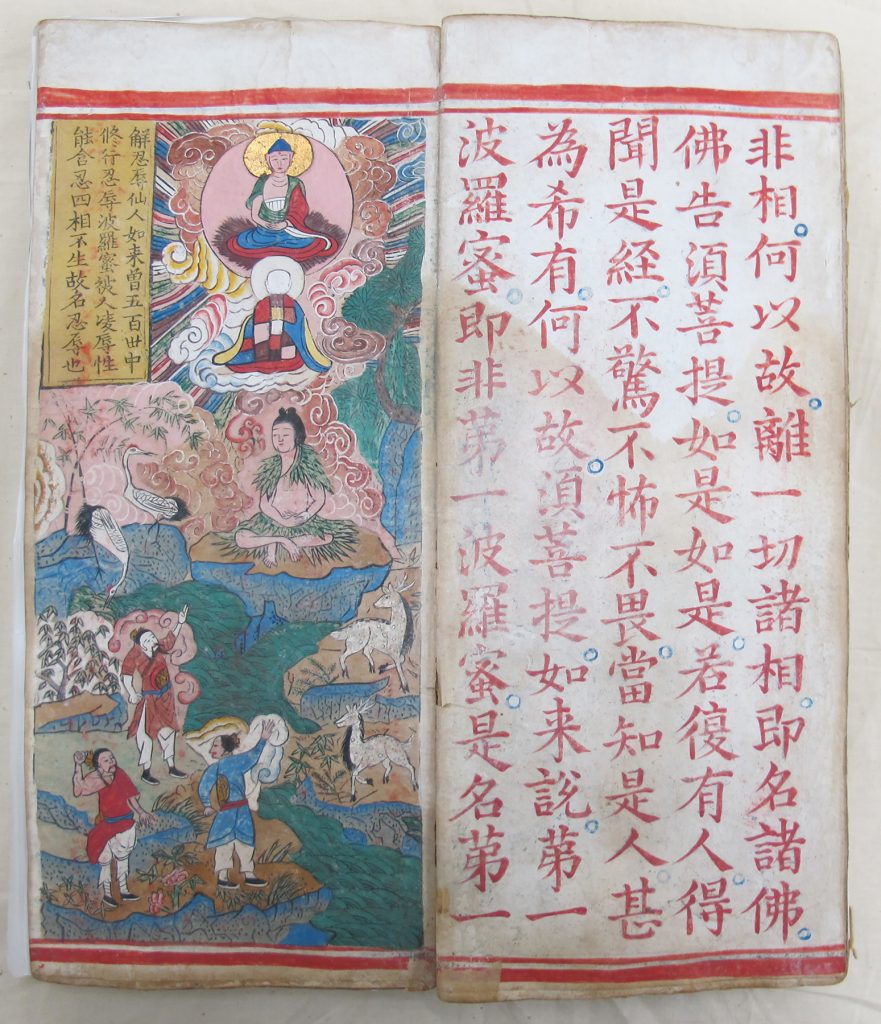 非相何以故離一切諸相即名諸佛
佛告湏菩提如是如是若復有人得
聞是経不驚不怖不畏當知是人甚
為希有何以故湏菩提如来說苐一
波羅蜜即非苐一波羅蜜是名苐一
解忍辱仙人如来曽五百世中
修行忍辱波羅蜜被人凌辱性
能含忍四相不生故名忍辱也